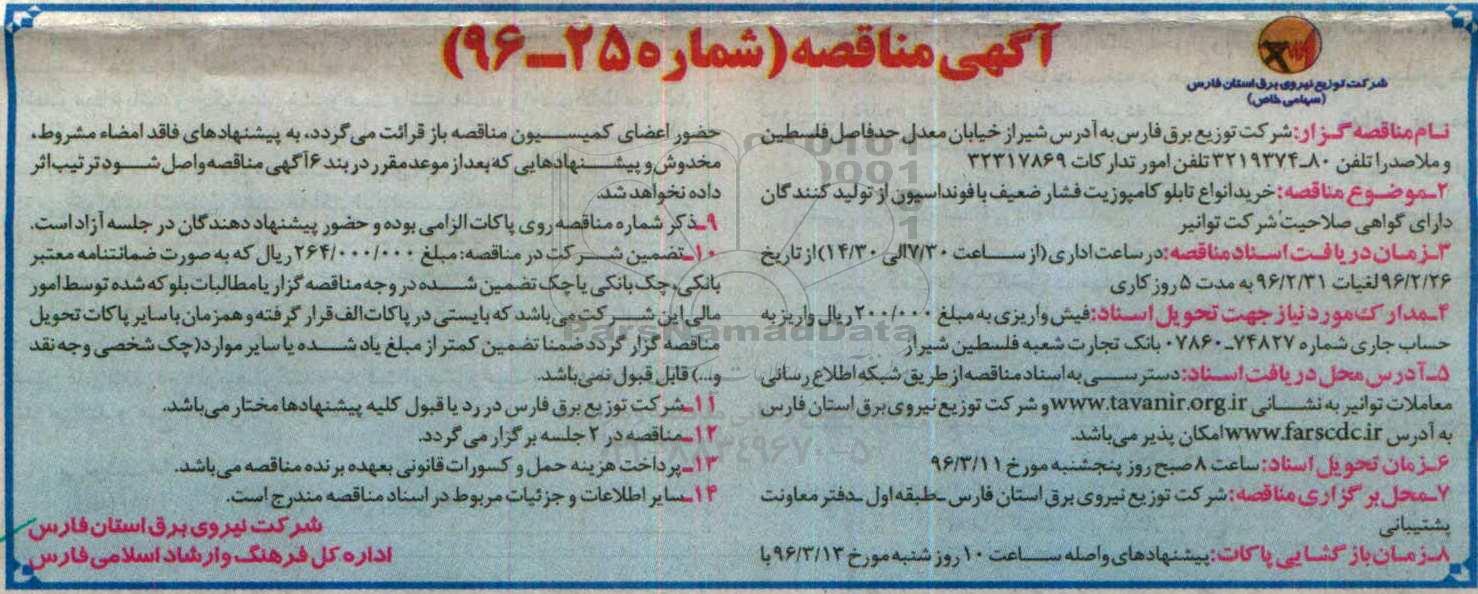 آگهی مناقصه (شماره ۲۵ـ۹۶)
شرکت توزیع نیروی برق استان فارس
(سهامی خاص)
نام مناقصه گزار: شرکت توزیع برق فارس به آدرس شیراز خیابان معدل حدفاصل فلسطین
و ملاصدرا تلفن ۸۰ـ۳۲۱۹۳۷۴ تلفن امور تدارکات ۳۲۳۱۷۸۶۹
۲ـموضوع مناقصه: خرید انواع تابلو کامپوزیت فشار ضعیف با فونداسیون از تولید کنندگان
دارای گواهی صلاحیت شرکت توانیر
۳ـزمان دریافت اسناد مناقصه: در ساعت اداری (از ساعت ۷/۳۰الی ۱۴/۳۰) از تاریخ
۹۶/۲/۲۶ لغیات ۹۶/۲/۳۱ به مدت ۵ روز کاری
۴ـمدارک مورد نیاز جهت تحویل اسناد: فیش واریزی به مبلغ ۲۰۰/۰۰۰ ریال واریز به
حساب جاری شماره ۷۴۸۲۷ـ۰۷۸۶۰ بانک تجارت شعبه فلسطین شیراز
۵ـآدرس محل دریافت اسناد: دسترسی به اسناد مناقصه از طریق شبکه اطلاع رسانی
معاملات توانیر به نشانی www.tavanir.org.ir و شرکت توزیع نیروی برق استان فارس
به آدرس www.farscdc.ir امکان پذیر می‌باشد.
۶ـزمان تحویل اسناد: ساعت ۸ صبح روز پنجشنبه مورخ ۹۶/۳/۱۱
۷ـمحل برگزاری مناقصه: شرکت توزیع نیروی برق استان فارس ـطبقه اول ـدفتر معاونت
پشتیبانی
۸ـزمان بازگشایی پاکات: پیشنهادهای واصله ساعت ۱۰ روز شنبه مورخ ۹۶/۳/۱۳ با
حضور اعضای کمیسیون مناقصه باز قرائت می گردد، به پیشنهادهای فاقد امضاء مشروط،
مخدوش و پیشنهادهایی که بعد از موعد مقرر در بند ۶ آگهی مناقصه واصل شود ترتیب اثر
داده نخواهد شد.
۹ـذکر شماره مناقصه روی پاکات الزامی بوده و حضور پیشنهاد دهندگان در جلسه آزاد است.
۱۰ـتضمین شرکت در مناقصه: مبلغ ۲۶۴/۰۰۰/۰۰۰ ریال که به صورت ضمانتنامه معتبر
بانکی، چک بانکی یا چک تضمین شده در وجه مناقصه گزار یا مطالبات بلوکه شده توسط امور
مالی این شرکت می باشد که بایستی در پاکات الف قرار گرفته و همزمان با سایر پاکات تحویل
مناقصه گزار گردد ضمنا تضمین کمتر از مبلغ یاد شده یا سایر موارد (چک شخصی وجه نقد
و...) قابل قبول نمی باشد.
۱۱ـشرکت توزیع برق فارس در رد یا قبول کلیه پیشنهادها مختار می باشد.
۱۲ـمناقصه در ۲ جلسه برگزار می گردد.
۱۳ـپرداخت هزینه حمل و کسورات قانونی بعهده برنده مناقصه می باشد.
۱۴ـسایر اطلاعات و جزئیات مربوط در اسناد مناقصه مندرج است.
شرکت نیروی برق استان فارس
اداره کل فرهنگ و ارشاد اسلامی فارس
ParsNamadData